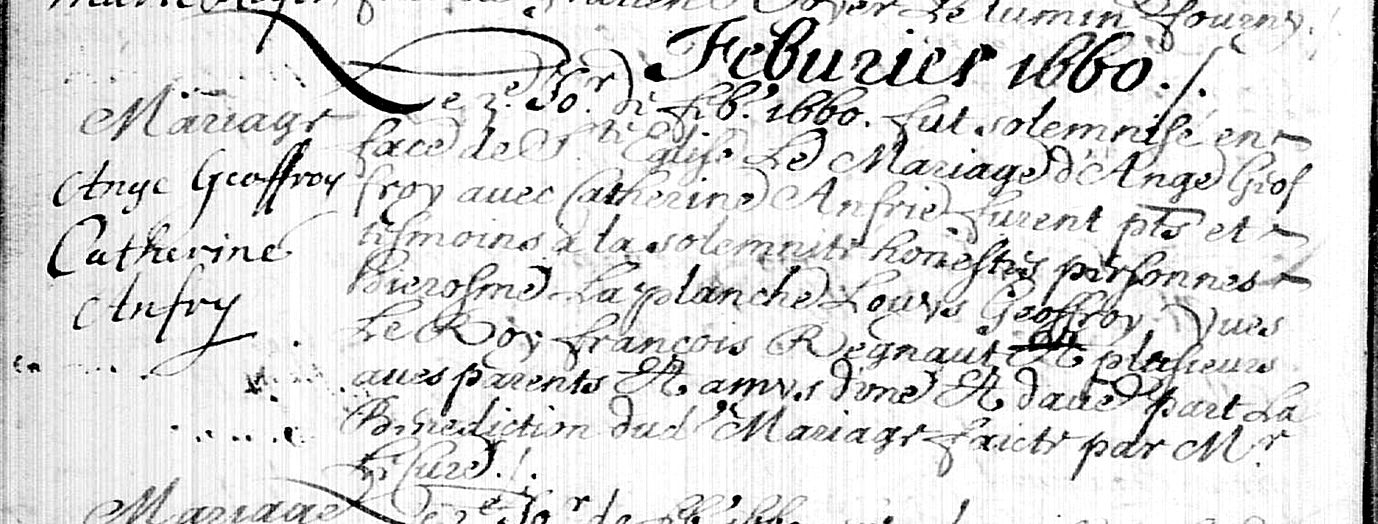 Feburier 1660./.
Mariage
Ange Geoffroy
Catherine
Anfry
Le 2e. Jor. de feb.r 1660. fut solemnisé en
face de S.te Eglise Le Mariage d'Ange Geof
froy avec Catherine Anfrie furent pts et
tesmoins a la solemnite honestes personnes
Hierosme Laplanche Louys Geoffroy, Yues
Le Roy francois Regnaut Et plusieurs
aues parents Et amys d'une Et d'aue part La
Benediction dud. Mariage faicte par Mr.
Le Cure./.
Mariage